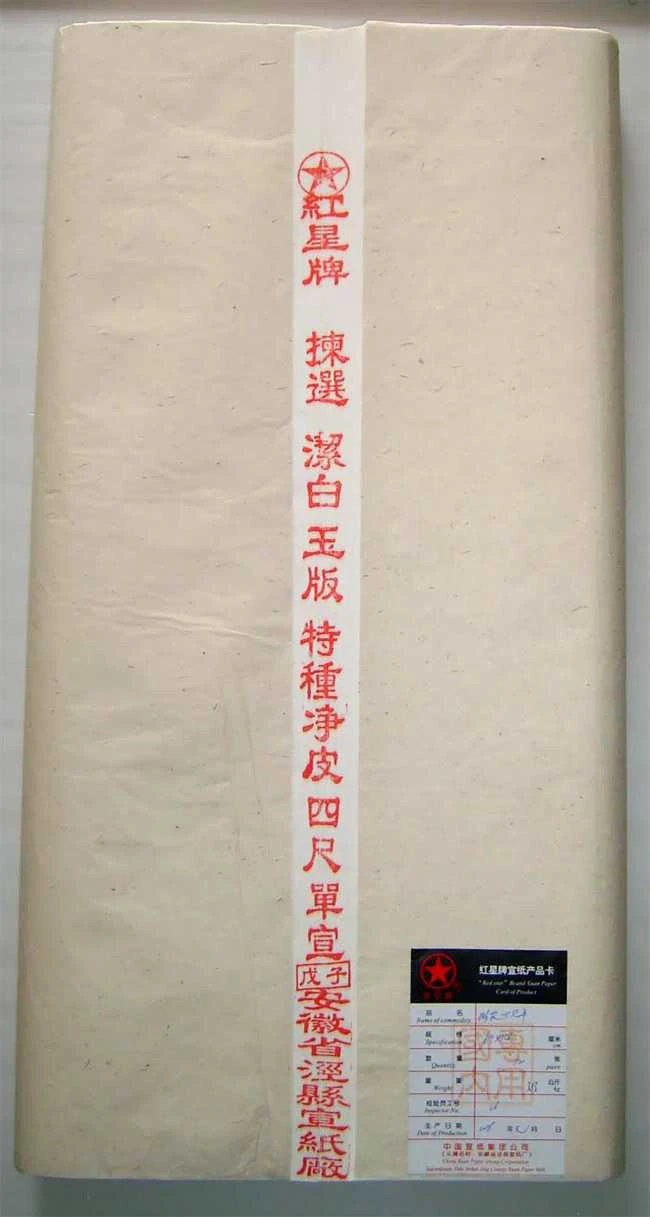 紅星牌 揀選 潔白 玉版 特種净皮 四尺 單宣
戊子
安徽省涇縣宣紙廠
红星牌宣纸产品卡
"Red star" Brand Xuan Paper
Card of Product
品 名
Name of commodity
规 格
Specification
厘米
cm
数 量
Quantity
张
piece
重 量
Weight
公斤
kg
检验员工号
Inspector No.
生产日期
Date of Production
年 月 日
國內專用
中国宣纸集团公司
China Xuan Paper Group Corporation